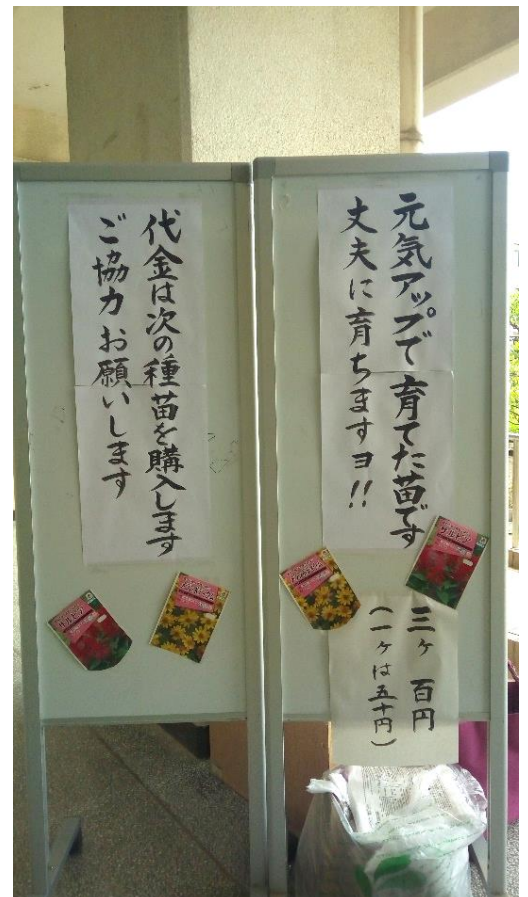 元気アップで育てた苗です
丈夫に育ちますヨ!!
三ヶ 百円
(一ヶは五十円)
代金は次の種苗を購入します
ご協力お願いします